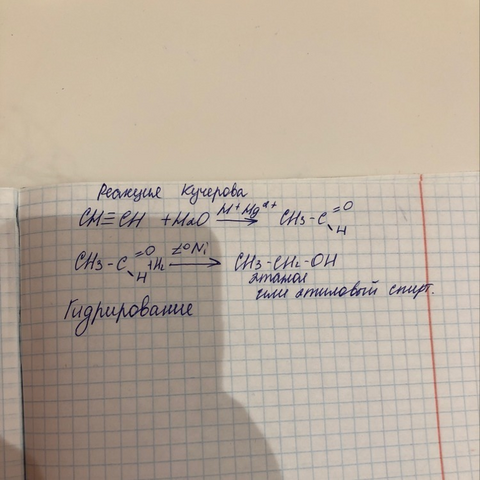 Реакция Кучерова
CH≡CH + H2O M⁺Mg²⁺ → CH3-C =O
H
CH3-C =O +H2 t° Ni → CH3-CH2-OH
H
этанол
или этиловый спирт.
Гидрирование